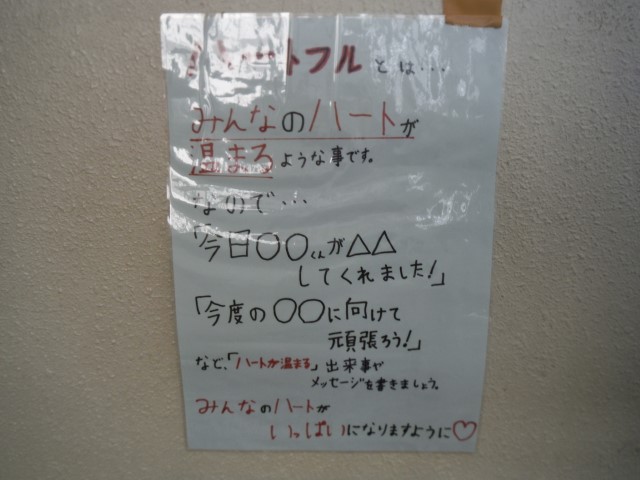 ハートフルとは・・・
みんなのハートが
温まるような事です。
なので・・・
「今日〇〇くんが△△
してくれました！」
「今度の〇〇に向けて
頑張ろう！」
など、「ハートが温まる」出来事や
メッセージを書きましょう。
みんなのハートが
いっぱいになりますように♡